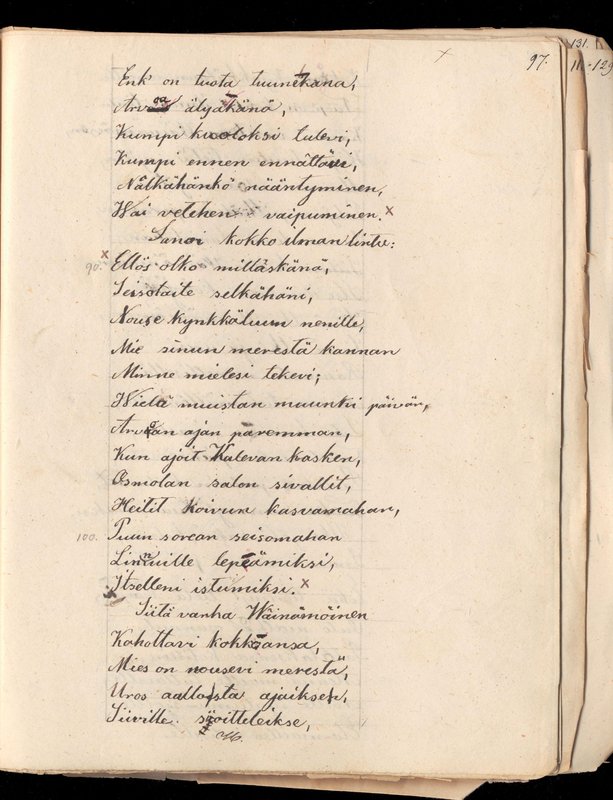 97.
131.
Enk' on tuota tunnekana,
Arvoa älyäkänä,
Kumpi kuoloksi tulevi,
Kumpi ennen ennättävi,
Nälkähänkö nääntyminen,
Wai vetehen vaipuminen. x
Sanoi kokko ilman lintu:
90. x Ellös olko milläskänä,
Seisotaite selkähäni,
Nouse kynkkäluun nenille,
Mie sinun merestä kannan
Minne mielesi tekevi;
Wielä muistan muunki päivän,
Arvoan ajan paremman,
Kun ajoit Kalevan kasken,
Osmolan salon sivallit,
Heitit koivun kasvamahan,
100. Puun sorean seisomahan
Linnuille lepeämiksi,
Itselleni istumiksi. x
Siitä vanha Wäinämöinen
Kohottavi kokkoansa,
Mies on nousevi merestä,
Uros aallosta ajaikse,
Siiville sioitteleikse,